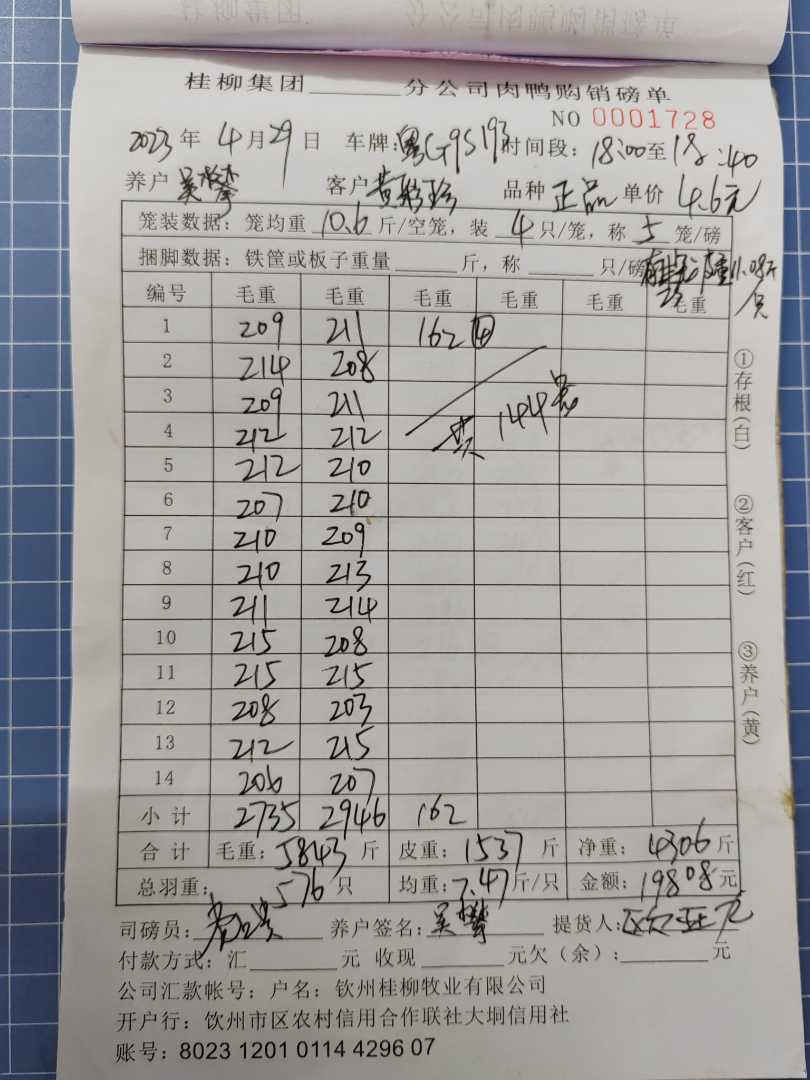 桂柳集团______分公司肉鸭购销磅单
NO 0001728
2023年4月29日 车牌:粤G9S193 时间段:18:00至18:40
养户 吴攀 客户 黄 珍 品种 正品 单价 4.6元
笼装数据:笼均重 10.6 斤/空笼,装 4 只/笼,称 5 笼/磅
捆脚数据:铁筐或板子重量______斤,称______只/磅 皮重11.08斤
只
编号 毛重 毛重 毛重 毛重 毛重 毛重
1 209 211 162 ④
2 214 208
3 209 211
4 212 212 共 144笼
5 212 210
6 207 210
7 210 209
8 210 213
9 211 214
10 215 208
11 215 215
12 208 203
13 212 215
14 206 207
小计 2735 2946 162
合计 毛重:5843斤 皮重:1537斤 净重:4306斤
总羽重:576只 均重:7.47斤/只 金额:19808元
司磅员: 养户签名:吴攀 提货人:
付款方式:汇______元 收现______元欠(余):______元
公司汇款帐号:户名:钦州桂柳牧业有限公司
开户行:饮州市区农村信用合作联社大垌信用社
账号:8023 1201 0114 4296 07
①存根(白)
②客户(红)
③养户(黄)